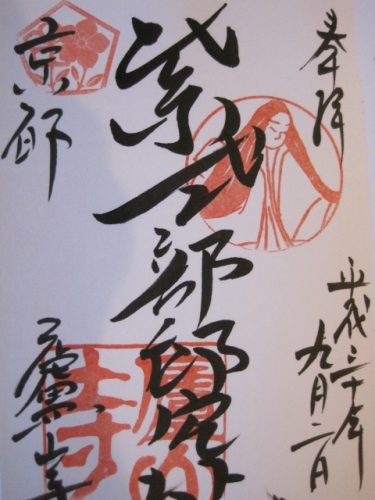 奉拝
平成三十年
九月二日
紫式部邸宅址
京都
廬山寺